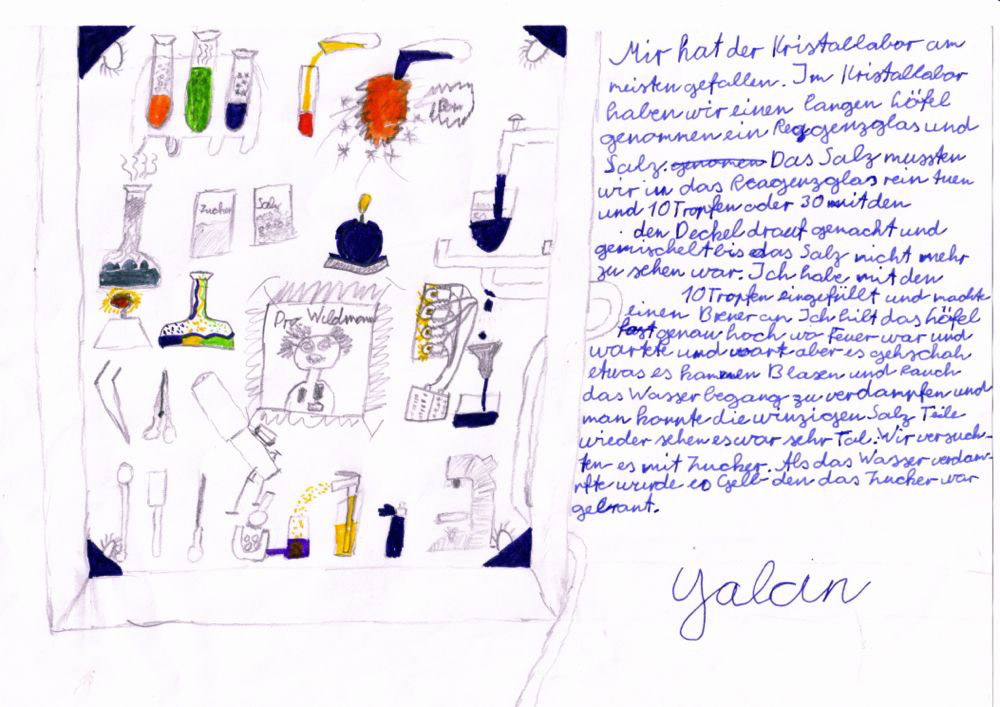 Zucker
Salz
Prof. Wildmann
Bom
Mir hat der Kristallabor am
meisten gefallen. Im Kristallabor
haben wir einen langen Löfel
genommen ein Reagenzglas und
Salz. genomen Das Salz mussten
wir in das Reagenzglas rein tuen
und 10 Tropfen oder 30 mit den
den Deckel drauf gemacht und
gemischelt bis das Salz nicht mehr
zu sehen war. Ich habe mit den
10 Tropfen eingefüllt und machte
einen Brener an Ich hilt das höfel
fast genau hoch wo Feuer war und
wartete und wart aber es gehschah
etwas es kammen Blasen und Rauch
das Wasser begang zu verdampfen und
man konnte die winzigen Salz Teile
wieder sehen es war sehr Tol. Wir versuch-
ten es mit Zucker. Als das Wasser verdam-
pfte wurde es Gelb den das Zucker war
gebrant.
Yalan